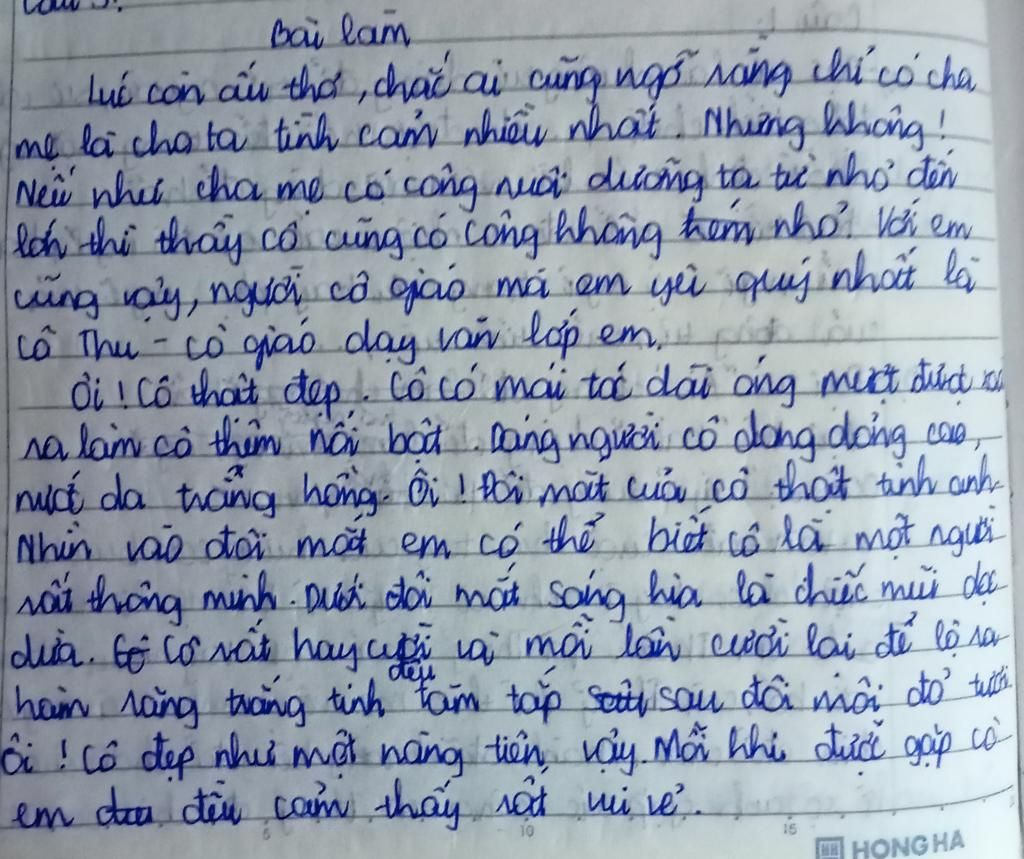 Bài làm
Lúc còn ấu thơ, chắc ai cũng ngỡ rằng chỉ có cha
mẹ là cho ta tình cảm nhiều nhất. Nhưng không!
Nếu như cha mẹ có công nuôi dưỡng ta từ nhỏ đến
lớn thì thầy cô cũng có công không kém nhỏ. Với em
cũng vậy, người cô giáo mà em yêu quý nhất là
cô Thu - cô giáo dạy văn lớp em.
Ôi! Cô thật đẹp. Cô có mái tóc dài óng mượt được
ra làm cô thêm nổi bật. Dáng người cô dong dỏng cao,
nước da trắng hồng. Ôi! Đôi mắt của cô thật tinh anh.
Nhìn vào đôi mắt em có thể biết cô là một người
rất thông minh. Dưới đôi mắt sáng kia là chiếc mũi dọc
dừa. Cô rất hay cười và mỗi lần cười lại để lộ ra
hàm răng trắng tinh đều tăm tắp sau đôi môi đỏ tươi.
Ôi! Cô đẹp như một nàng tiên vậy. Mỗi khi được gặp cô
em đều cảm thấy rất vui vẻ.
5 10 15
HONG HA